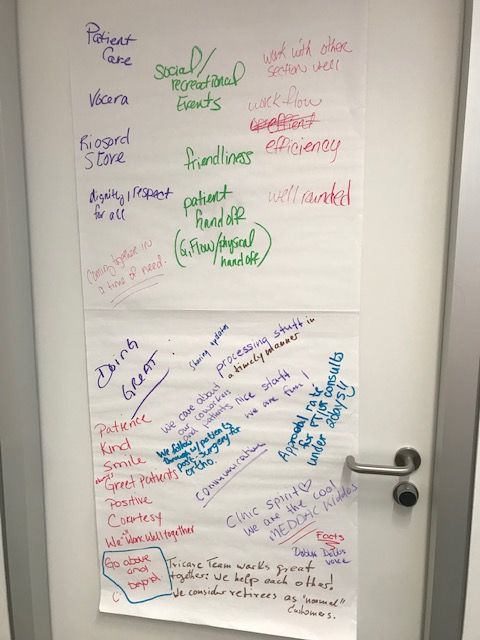 Patient
Care
Vocera
Riosord
Store
dignity / respect
for all
Coming together in
a time of need!
Social/
recreational
Events
friendliness
patient
handoff
(Q,Flow/physical
handoff)
work with other
section well
work-flow
efficiency
well rounded
Doing
GREAT:
Sharing updates
processing stuff in
a timely manner
We care about
our coworkers
and patients
nice staff
we are fun!
We follow
through w/ patients
post-surgery for
ortho.
communication
Approval rate
for PT/OT consults
under 2 days!!
Patience
Kind
Smile
Greet patients
Positive
Courtesy
We work well together
Go above
and
beyond
Clinic spirit ♡
We are the cool
MEDDAC Kiddos
Facts
voice
Tricare Team works great
together: we help each other!
We consider retirees as "normal"
customers.